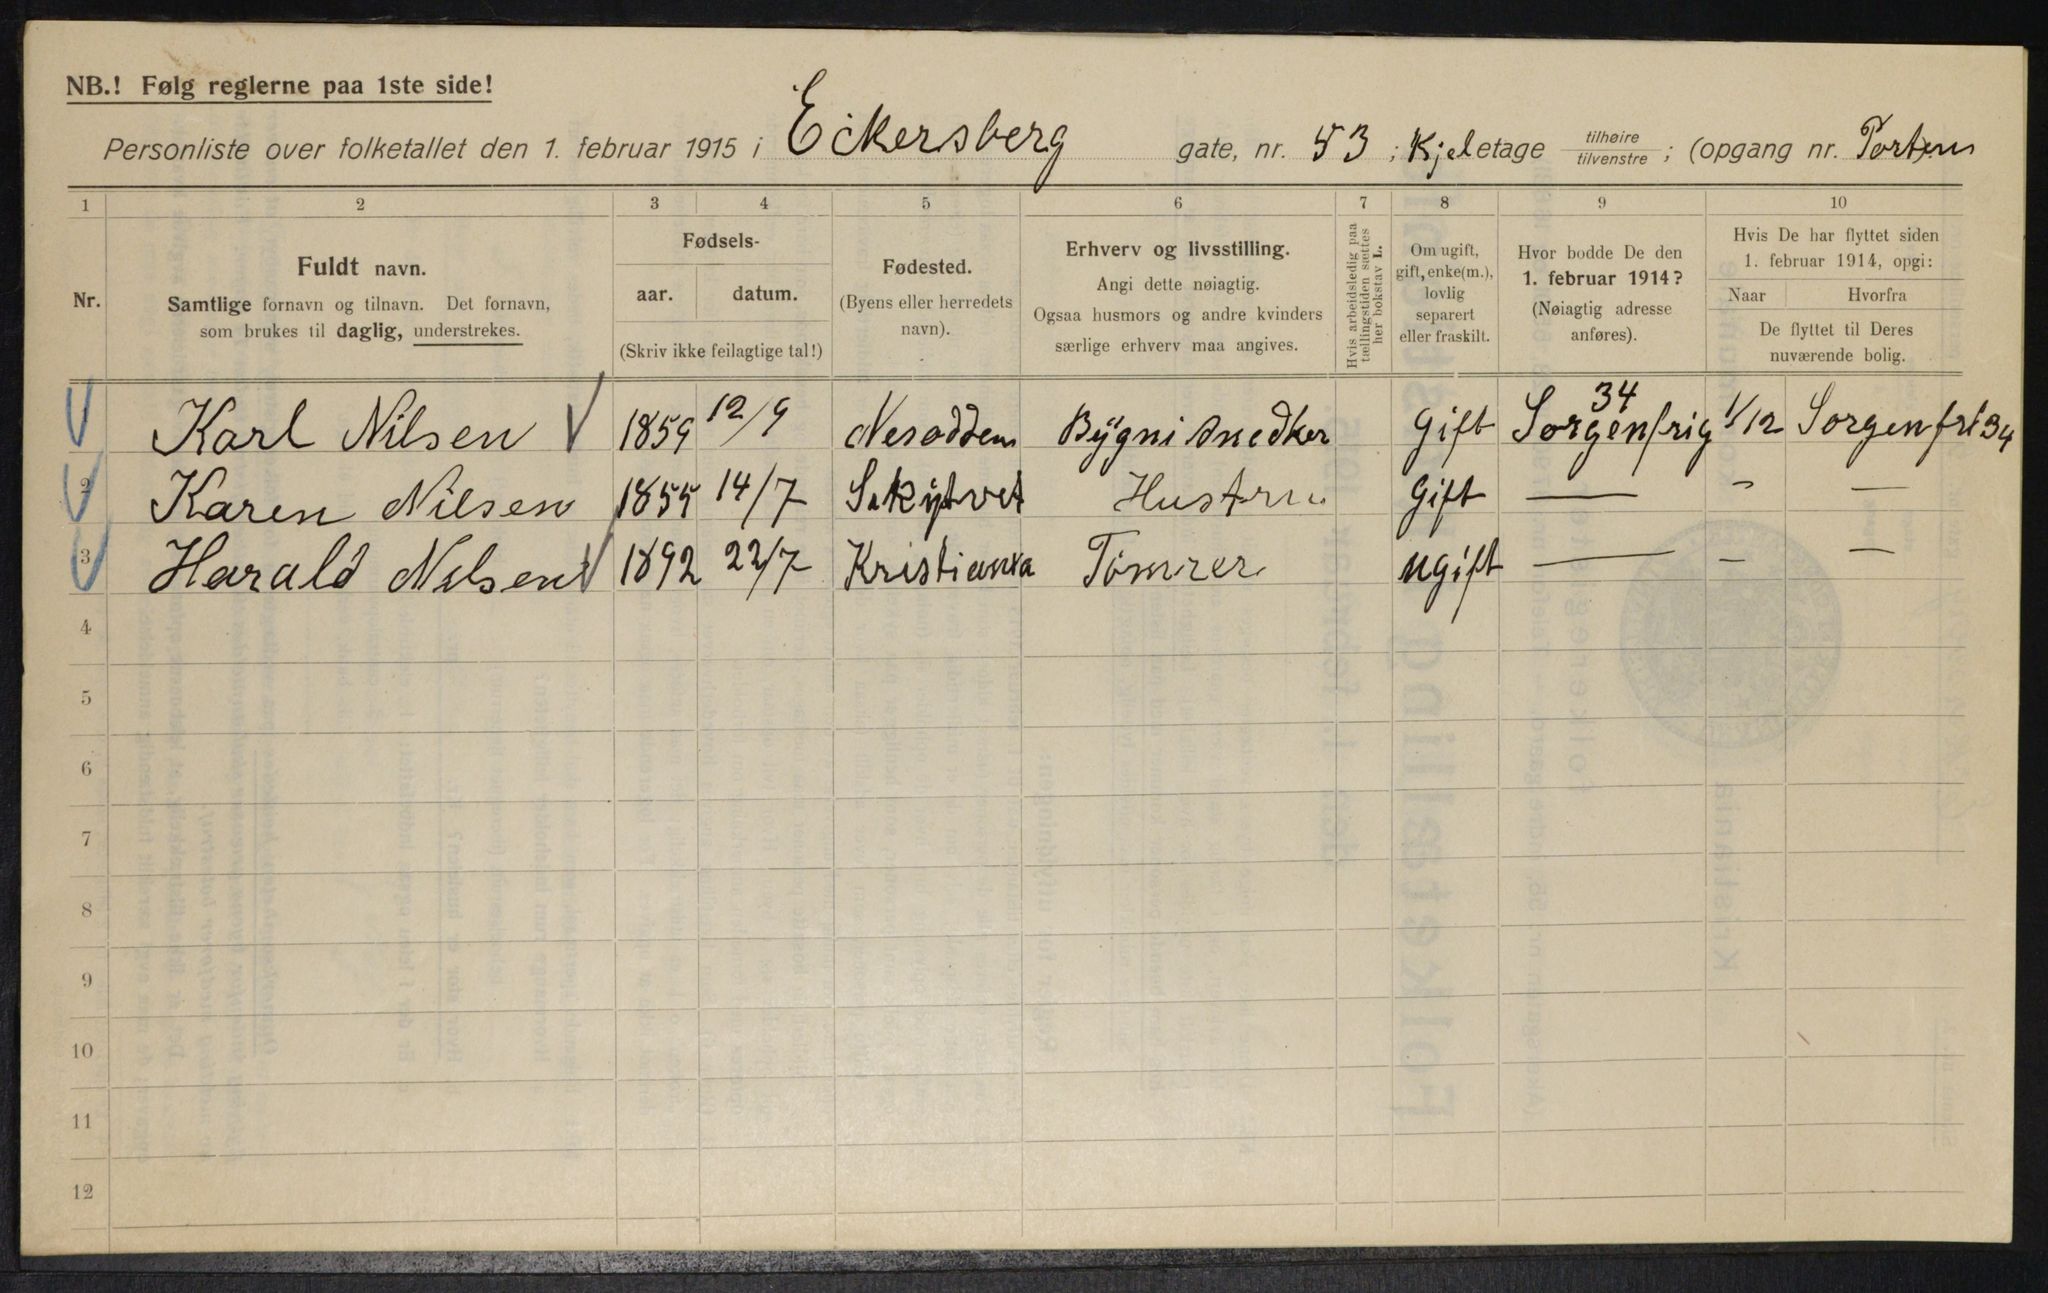 NB.! Følg reglerne paa 1ste side!
Personliste over folketallet den 1. februar 1915 i Eckersberg gate, nr. 53; Kjeletage tilhøire/tilvenstre; (opgang nr. Porten
1 2 3 4 5 6 7 8 9 10
Nr.
Fuldt navn.
Samtlige fornavn og tilnavn. Det fornavn,
som brukes til daglig, understrekes.
Fødsels-
aar. datum.
(Skriv ikke feilagtige tal!)
Fødested.
(Byens eller herredets
navn).
Erhverv og livsstilling.
Angi dette nøiagtig.
Ogsaa husmors og andre kvinders
særlige erhverv maa angives.
Hvis arbeidsledig paa
tællingstiden sættes
her bokstav L.
Om ugift,
gift, enke(m.),
lovlig
separert
eller fraskilt.
Hvor bodde De den
1. februar 1914?
(Nøiagtig adresse
anføres).
Hvis De har flyttet siden
1. februar 1914, opgi:
Naar Hvorfra
De flyttet til Deres
nuværende bolig.
Karl Nilsen 1859 12/9 Nesodden Bygni snedker Gift Sorgenfrig 34 1/12 Sorgenfri 34
2 Karen Nilsen 1855 14/7 Hustru Gift — " —
3 Harald Nilsen 1892 22/7 Kristiania Tømrer ugift — — —
4
5
6
7
8
9
10
11
12